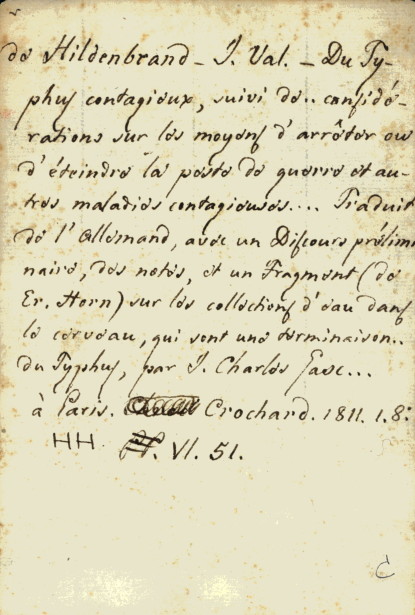 de Hildenbrand - J. Val. - Du Ty-
phus contagieux, suivi de.. considé-
rations sur les moyens d'arrêter ou
d'éteindre la peste de guerre et au-
tres maladies contagieuses.... Traduit
de l'Allemand, avec un Discours prélimi
naire, des notes, et un Fragment (de
Er. Horn) sur les collections d'eau dans
le cerveau, qui sont une terminaison..
du Typhus, par J. Charles Gasc...
à Paris. Crochard. 1811. 1.8:
HH. VI. 51.
C